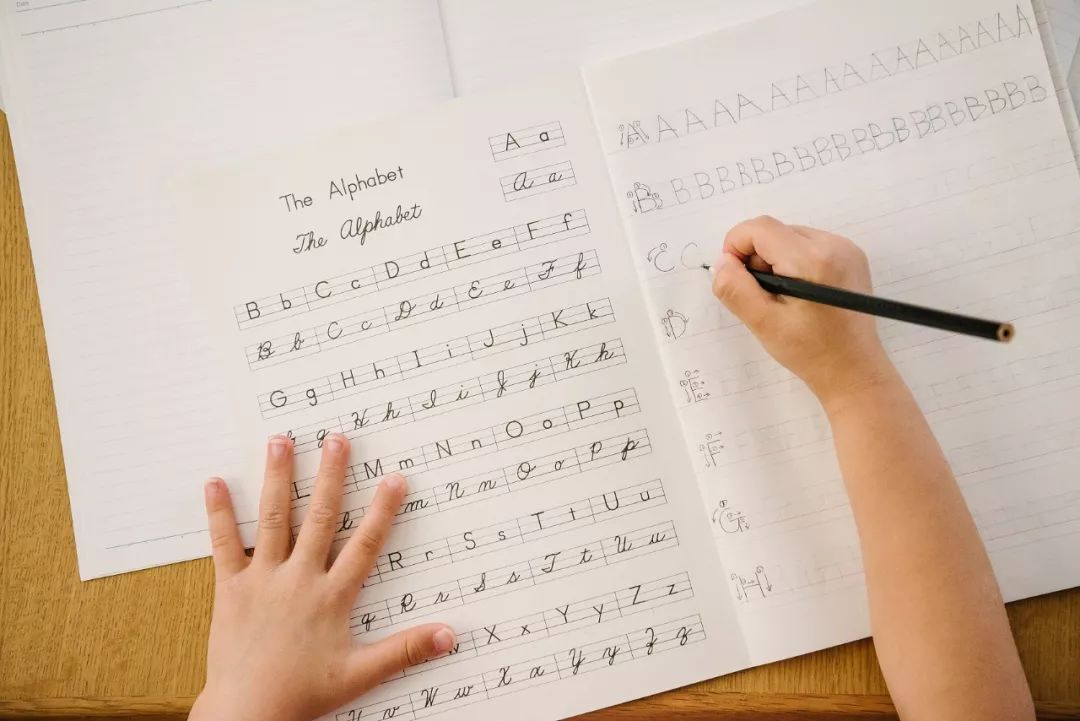 Date
A a
A a
The Alphabet
The Alphabet
B b C c D d E e F f
B b C c D d E e F f
G g H h I i J j K k
g H h I i J j K k
L M m N n O o P p
l m N n O o P p
R r S s T t U u
q R r S s T t U u
w X x Y y Z z
v W w X x Y y Z z
A A A A A A A A A A A A A A A A A
B B B B B B B B B B B B B B B B B B B B
C C
D
E
F
G
H